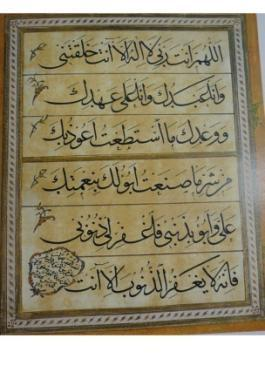 اللهم انت ربي لا اله الا انت خلقتني
وانا عبدك وانا على عهدك
ووعدك ما استطعت اعوذ بك
من شر ما صنعت ابوء لك بنعمتك
علي وابوء بذنبي فاغفر لي ذنوبي
فانه لا يغفر الذنوب الا انت